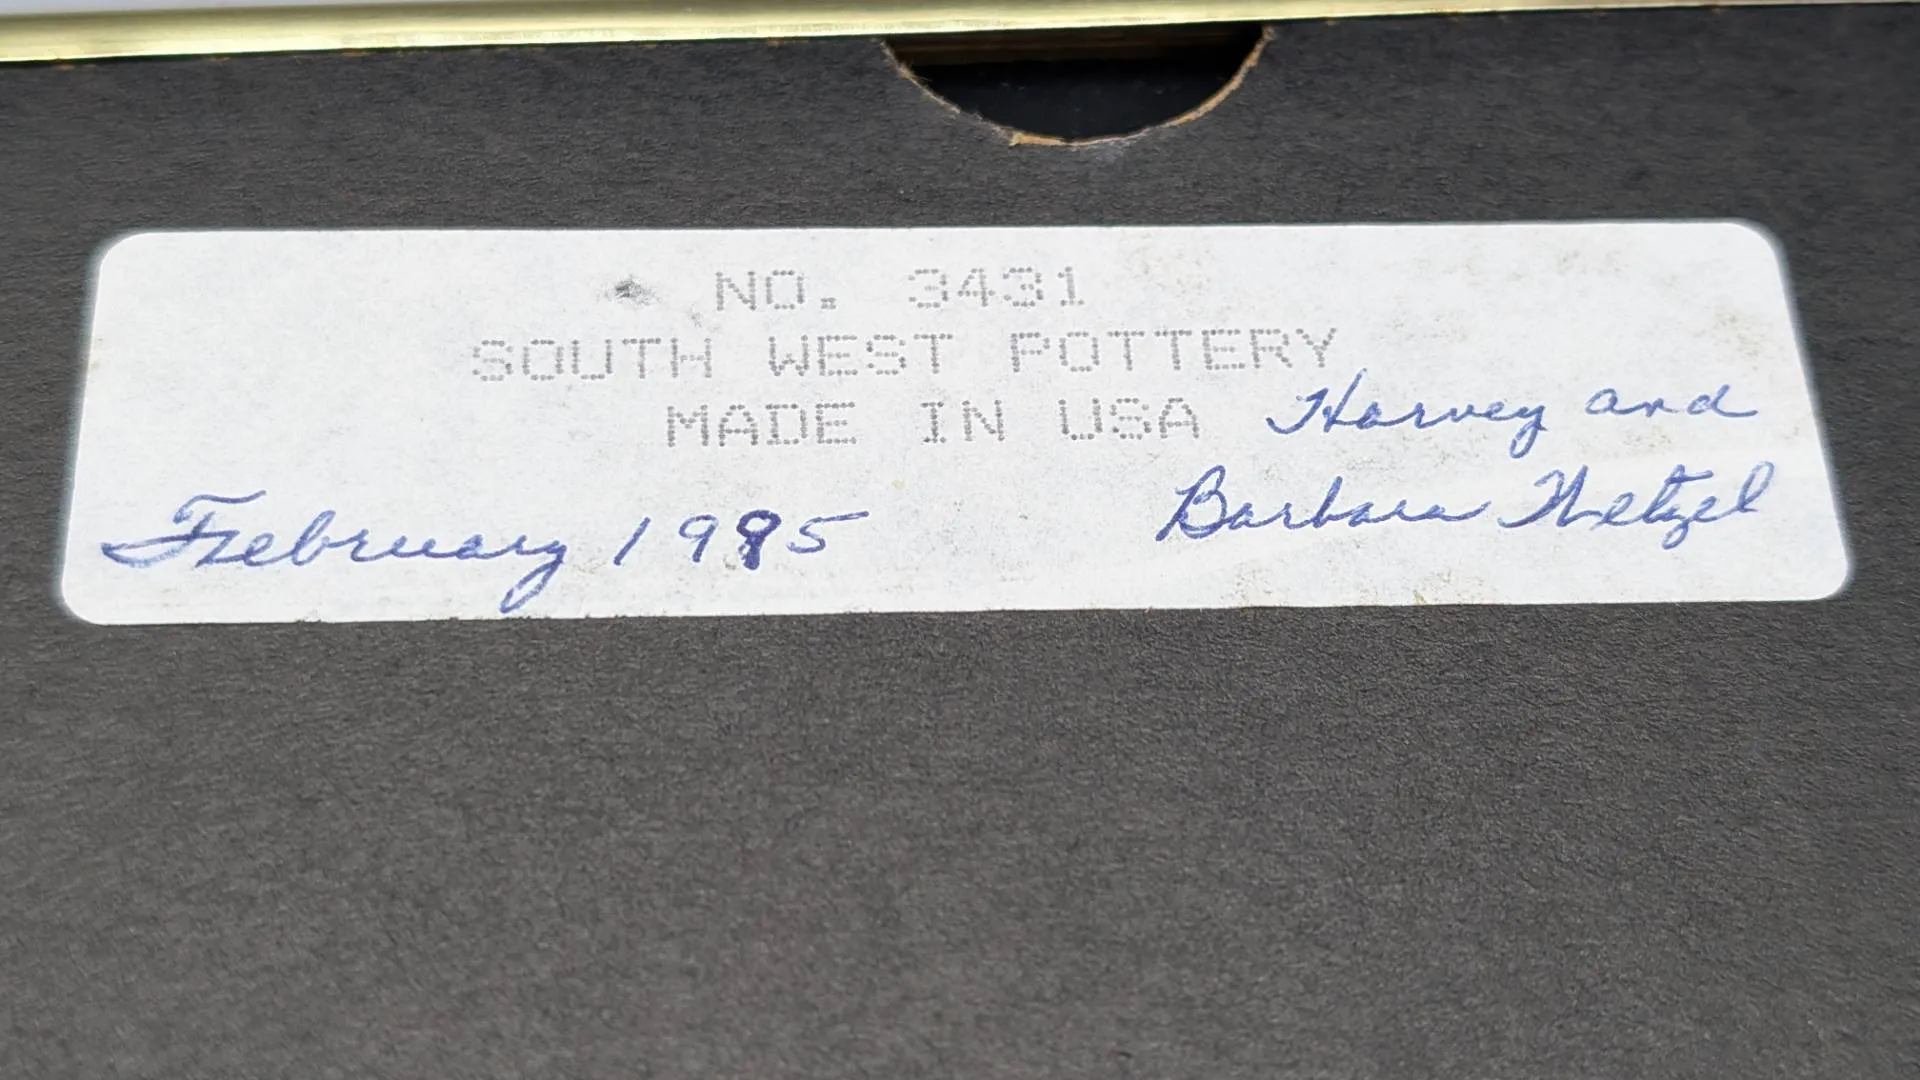 NO. 3431
SOUTH WEST POTTERY
MADE IN USA
Harvey and
Barbara Wetzel
February 1985